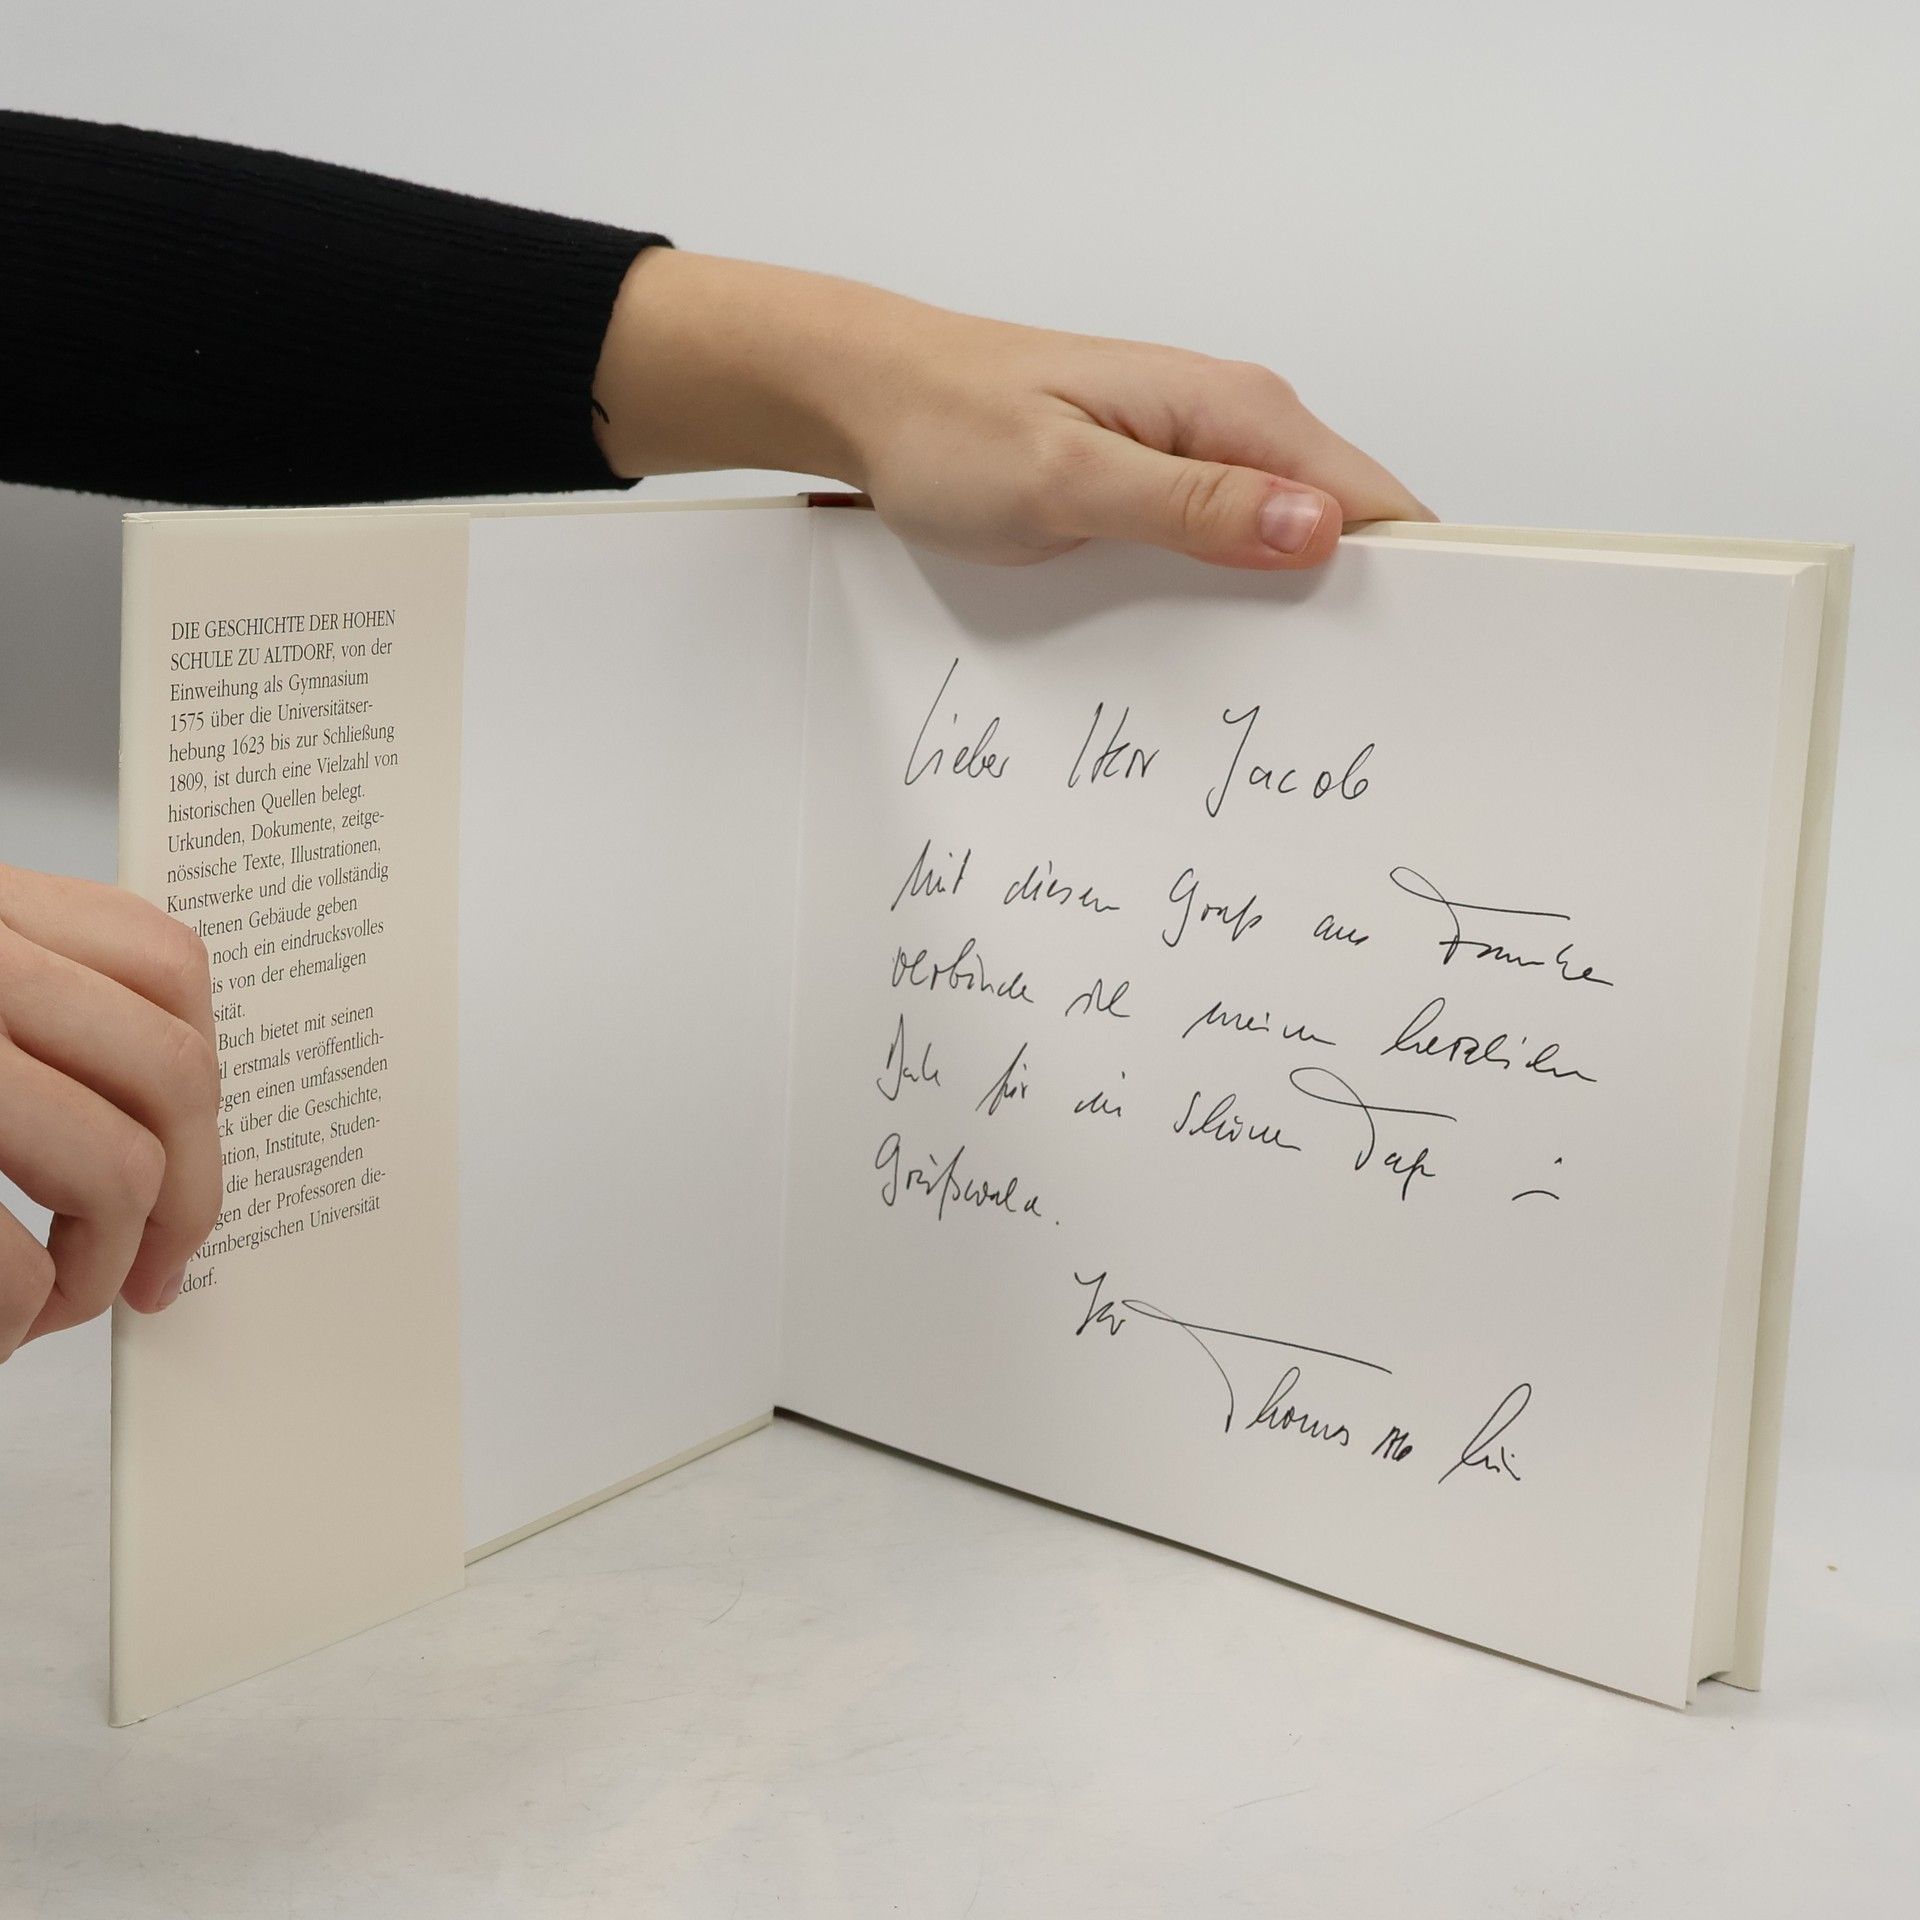 DIE GESCHICHTE DER HOHEN
SCHULE ZU ALTDORF, von der
Einweihung als Gymnasium
1575 über die Universitätser-
hebung 1623 bis zur Schließung
1809, ist durch eine Vielzahl von
historischen Quellen belegt.
Urkunden, Dokumente, zeitge-
nössische Texte, Illustrationen,
Kunstwerke und die vollständig
altenen Gebäude geben
noch ein eindrucksvolles
is von der ehemaligen
sität.
Buch bietet mit seinen
il erstmals veröffentlich-
egen einen umfassenden
ck über die Geschichte,
ation, Institute, Studen-
die herausragenden
gen der Professoren die-
Nürnbergischen Universität
dorf.
Lieber Herr Jacob
Mit diesem Gruß aus Franken
verbinde ich meinen herzlichen
Dank für die schönen Tage in
Greifswald.
Ihr
Thomas